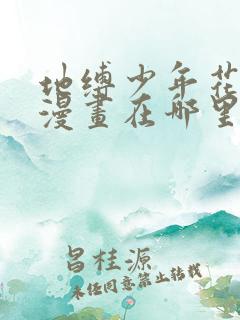 地缚少年花
漫畫在哪里
昌桂源
未经同意禁止转载